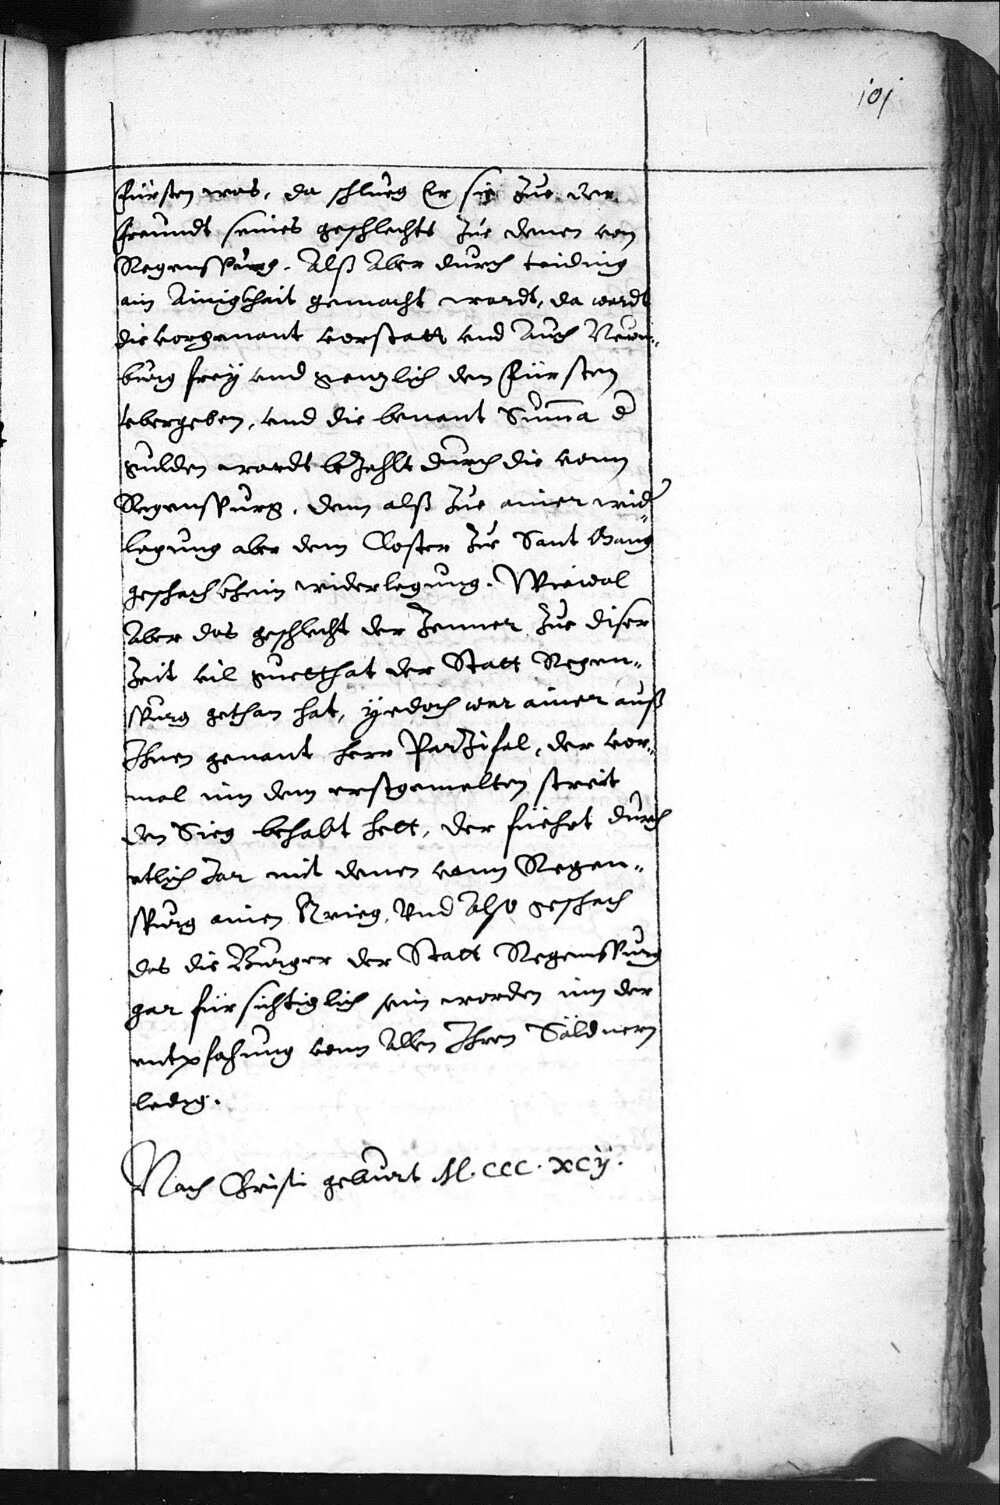 101
Fürsten was, da schlueg Er sich zue der
freundt seines geschlechts zue denen von
Regenspurg. Alß Aber durch teiding
ain Ainigkhait gemacht wardt, da wardt
die vorgenant vorstatt vnd Auch Neun-
burg frey vnd genzlich den Fürsten
vbergeben, vnd die benant Summa d
gulden wardt bezahlt durch die vonn
Regenspurg, dem alß zue ainer wid
legung aber dem Closter zue Sant
geschach khein widerlegung. Wiewol
Aber das geschlecht der Zenner zue diser
zeit vil guetthat der Statt Regen-
spurg gethan hat, yedoch war ainer auß
Ihnen genant herr Parzifal, der vor-
mal inn dem erstgemelten streit
den Sieg behabt hett, der füehrt durch
etlich Jar mit denen vonn Regen-
spurg ainen Krieg, Vnd Also geschach
das die Burger der Statt Regenspurg
gar fürsichtiglich sein worden inn der
entpfahung vonn Allen Ihren Söldnern
ledig.
Nach Christi geburt M.CCC.XCij.